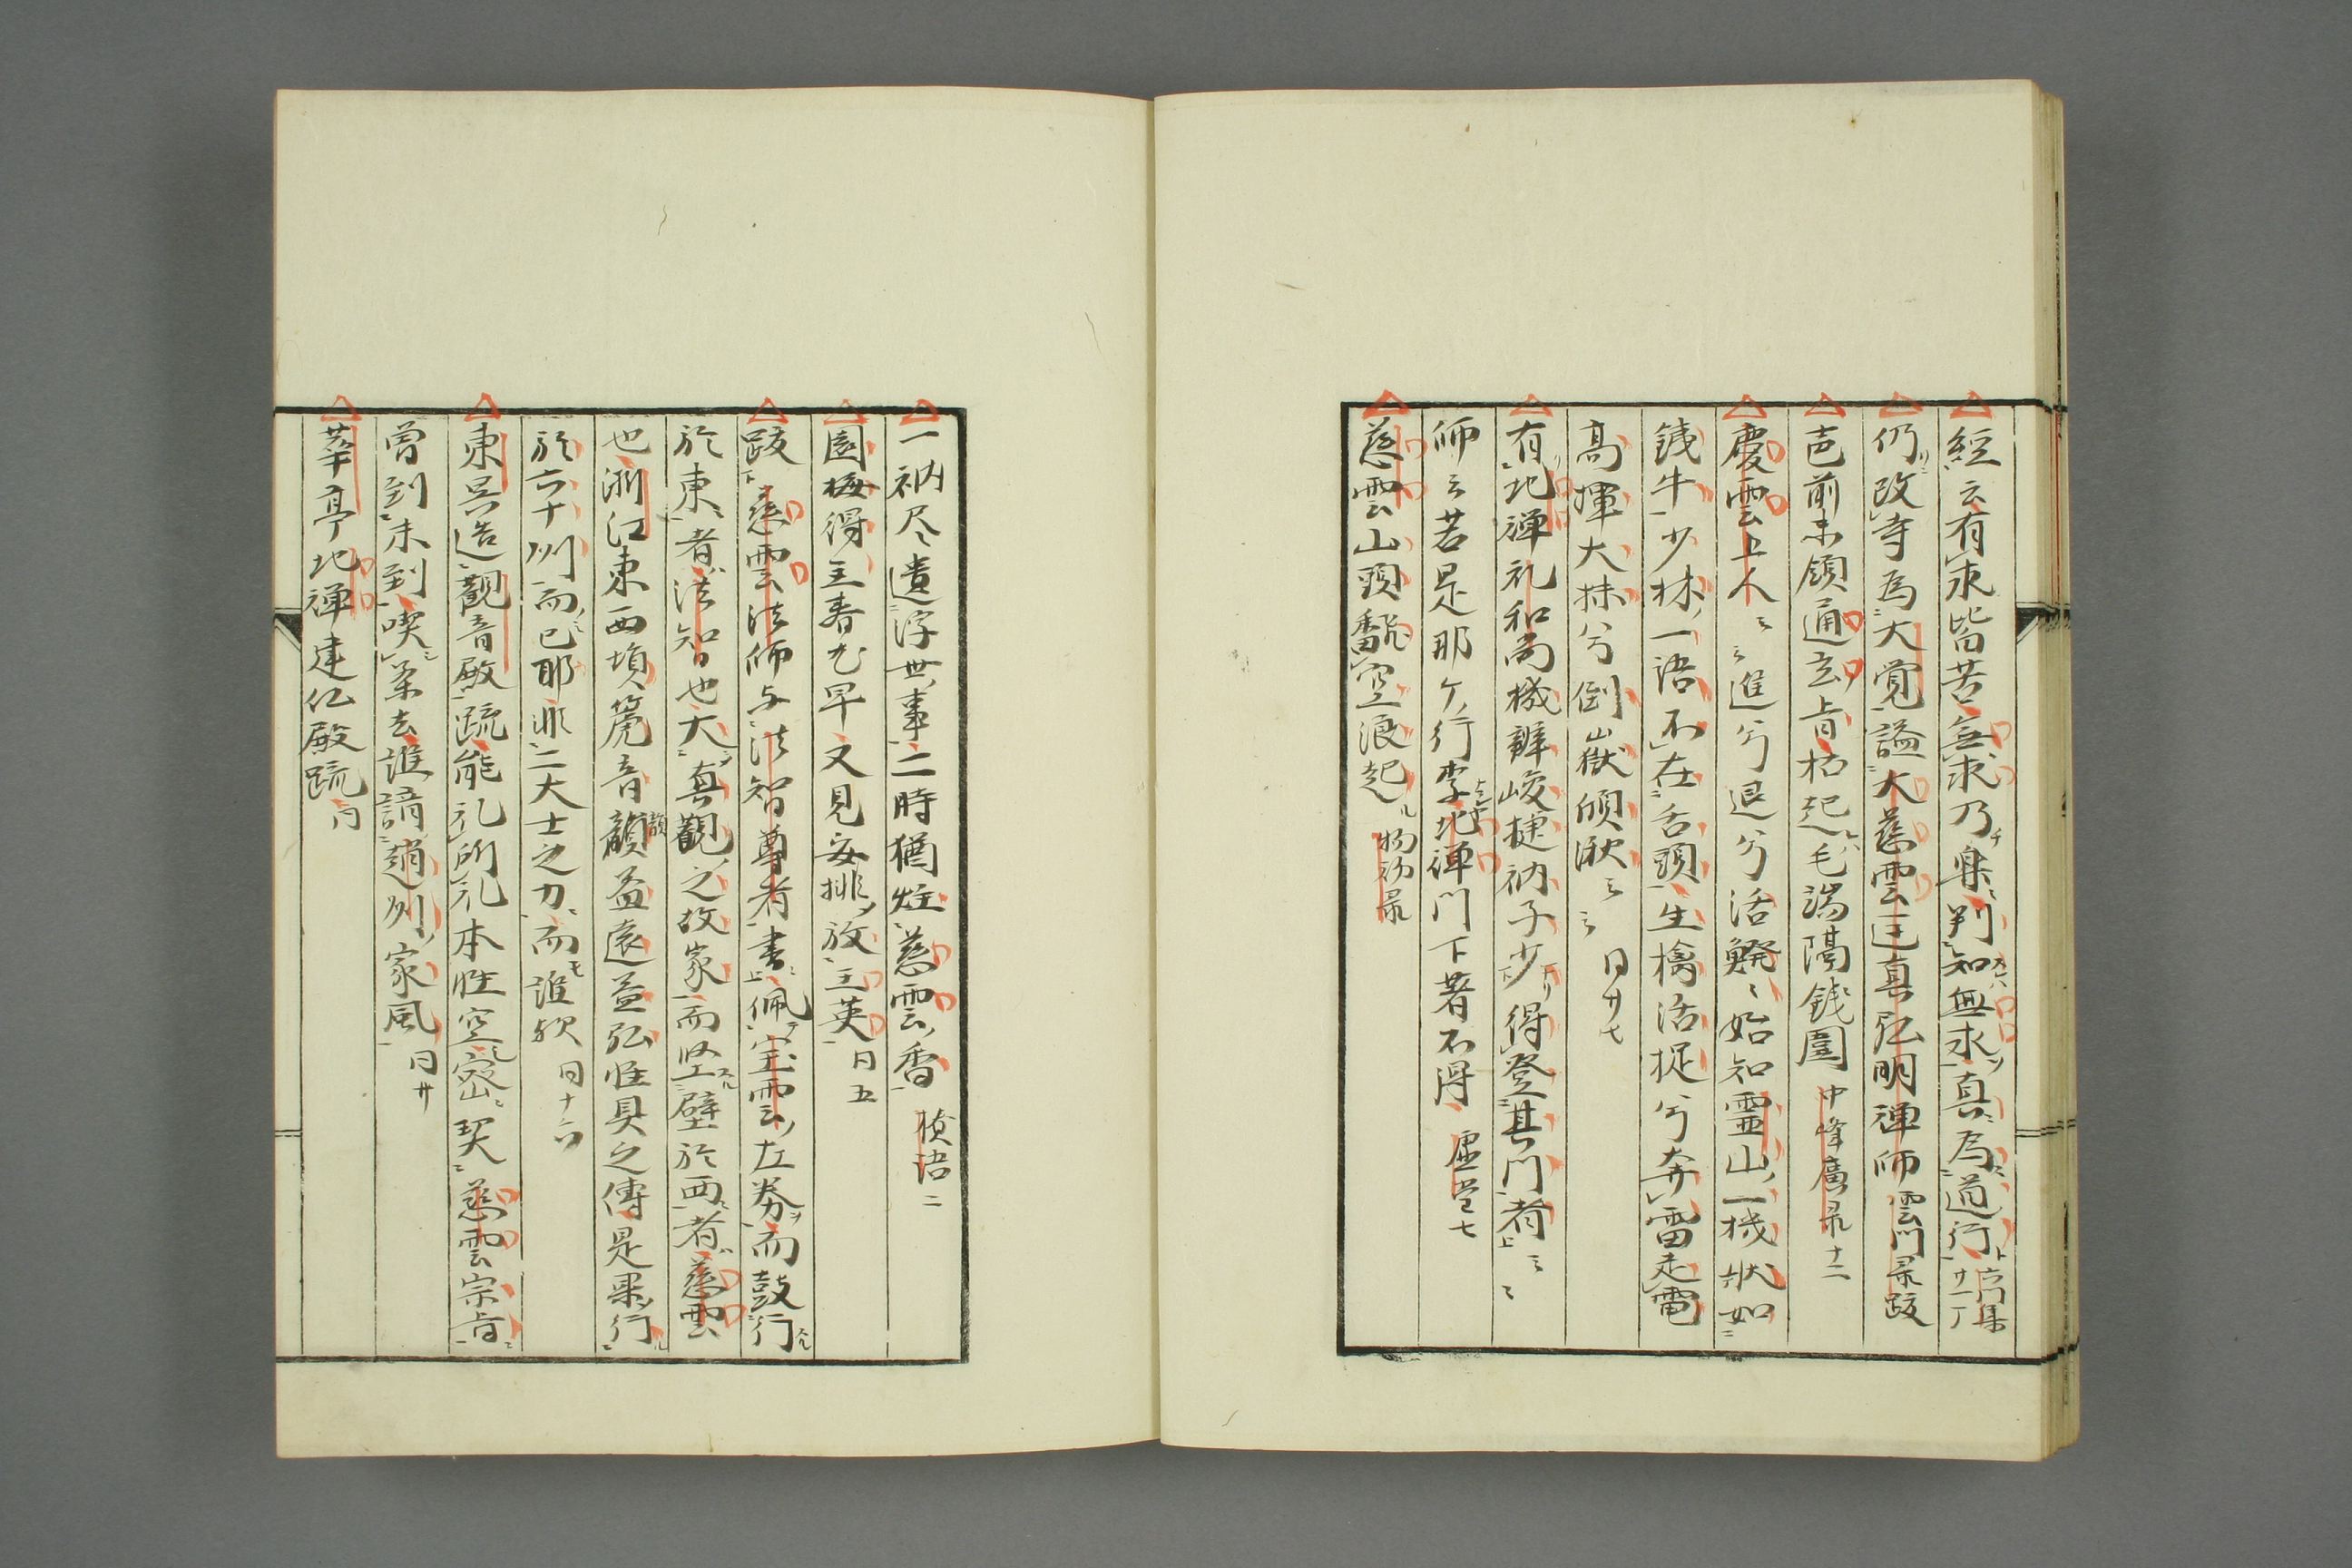 経云有求皆苦無求乃楽判知無求真為道行 六門集廿一丁
仍改寺為大覚謚大慈雲匡真弘明禅師 雲門录跋
芭前未領通玄旨枯起毛端隔銕圍 中峰廣录十二
慶雲上人〻〻進兮退兮活鱍〻始知霊山一機状如
銕牛少林一語不在舌頭生擒活捉兮奔雷走電
高揮大抹兮倒嶽傾湫〻〻 同廿七
有北禅礼和尚機辯峻捷衲子少得登其門者〻〻
师云若是那个行李北禅門下著不得 虚堂七
慈雲山頭翻空浪起 物初录
一衲尽遺浮世事二時猶炷慈雲香
園梅得主春花早又見安排放玉英 同五
跋慈雲法师与法智尊者書佩宝雲左券而鼓行
於東者法智也大真觀之故家而坚壁於西者慈雲
也浙江東西塤篪音韻益遠益弘惟具之傳是果行
於六十州而已耶非二大士之力而誰欤 同十六
東呉造觀音殿疏能礼所礼本性空密契慈雲宗旨
曽到未到喫茶去誰謂趙州家風 同廿
華亭北禅建仏殿疏 同